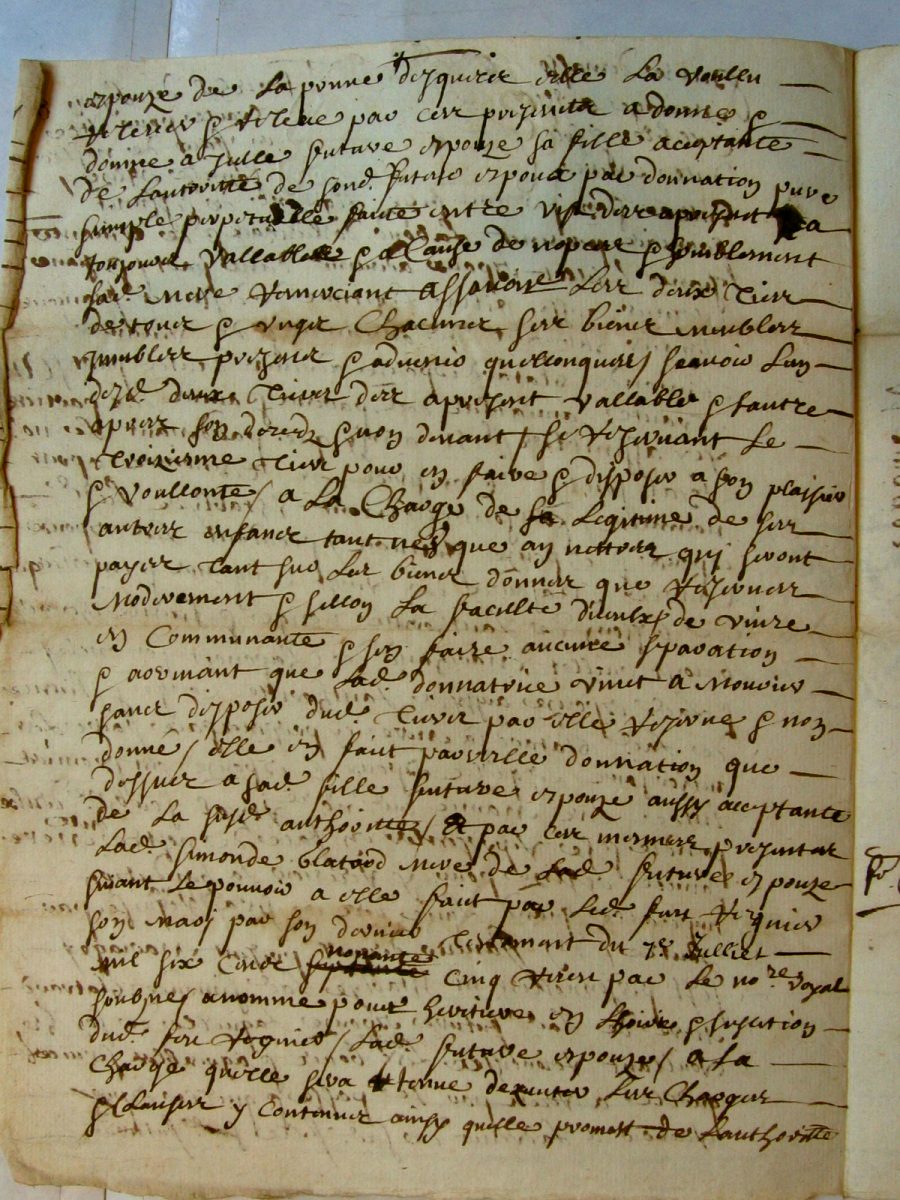 espouze de La penne desquerir elle La voullu
et donne par ces presentes a donné &
donne a Julle future espouze sa fille acceptante
de Lautoritté de sond. futur espoux par donnation pure
simple perpetuelle faite entre vifs des apresent a
tousjours vallable & a Cause de nopces & semblement
sad. mere remerciant assavoir Les deux Tiers
de tous & ungs Chacuns ses biens meubles
jmeubles presens & advenir quelconques / scavoir Lun
desd. deux Tiers des apresent vallable & lautre
apres son deceds & non devant / se reservant Le
Troizieme Tiers pour en faire & disposer a son plaisir
& voullonté / a La Charge de sa Legitime de ses
autres enfans tant nes que a naittre qui seront
payes Tant sur Les biens donnes que reserves
Moderement & sellon La faculté diceulx de vivre
en Communauté & sen faire aucune separation
& advenant que Lad. donnatrice vint a Mourir
sans disposer dud. Tiers par elle reservé & non
donné / elle en fait pareille donnation que
dessus a sad. fille future espouze aussy acceptante
de La susd. authoritté / Et par ces mesmes presentes
Lad. Simonde blatard mere de Lad. future espouze
suivant Le pouvoir a elle fait par Led. feu
son mary par son dernier Testement du 7e Julliet
mil six Cens nonante cinq receu par Le nore royal
soubzne / a nomme pour heritiere en Lhoirie & sucation
dud. feu / Lad. future espouze / a La
Charge quelle sera tenue dexecuter Les Charges
& Clauses y Contenues ainsy quelle promet de Lauthoritté